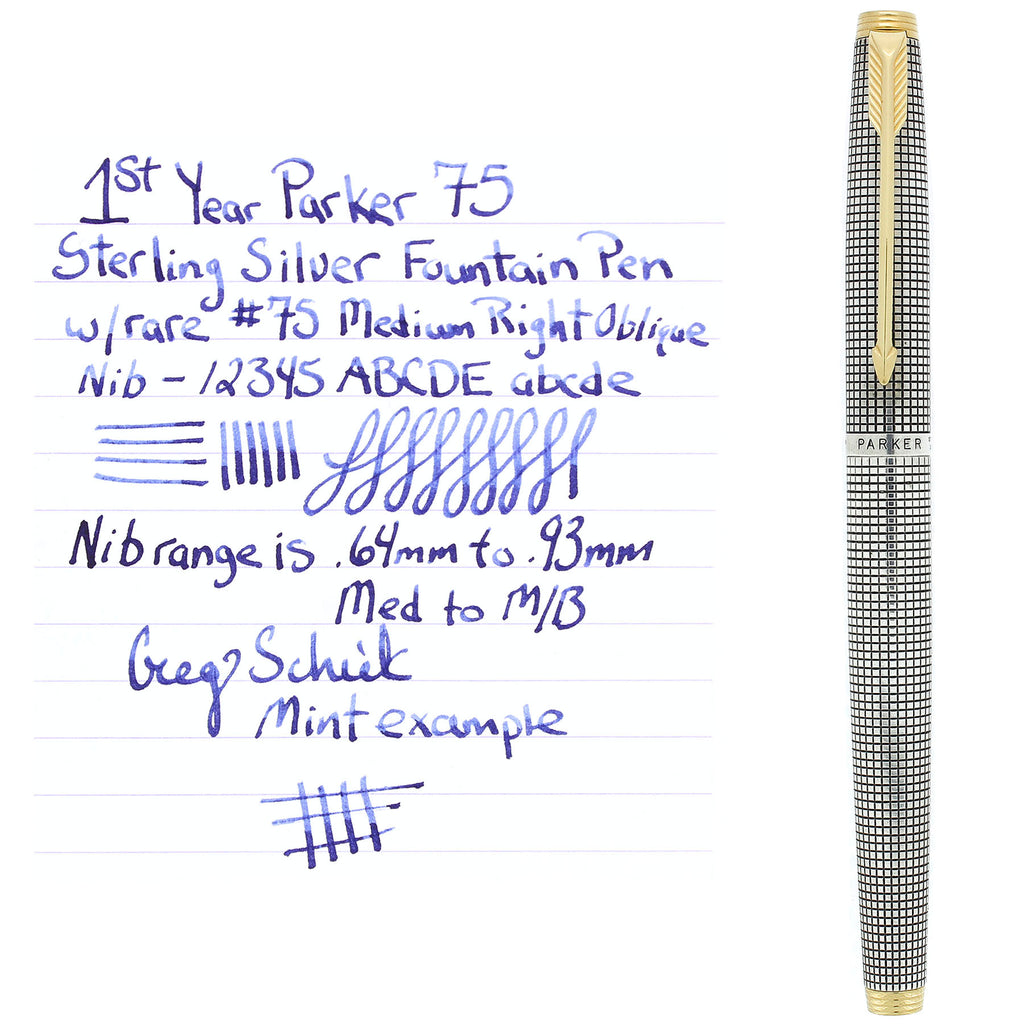 1st Year Parker 75
Sterling Silver Fountain Pen
w/rare #75 Medium Right Oblique
Nib – 12345 ABCDE abcde
Nib range is .64mm to .93mm
Med to M/B
Greg
Mint example
PARKER